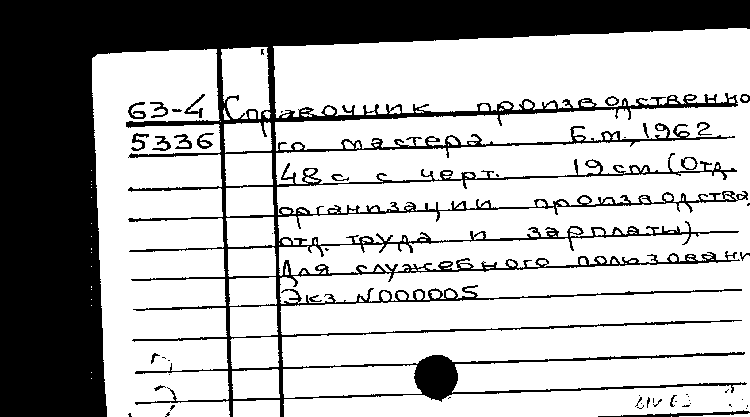 63-4 Справочник производственно
5336 го мастера. Б.м., 1962.
48 с. с черт. 19 см. (Отд.
организации производства,
отд. труда и зарплаты).
Для служебного пользовани
Экз. N000005